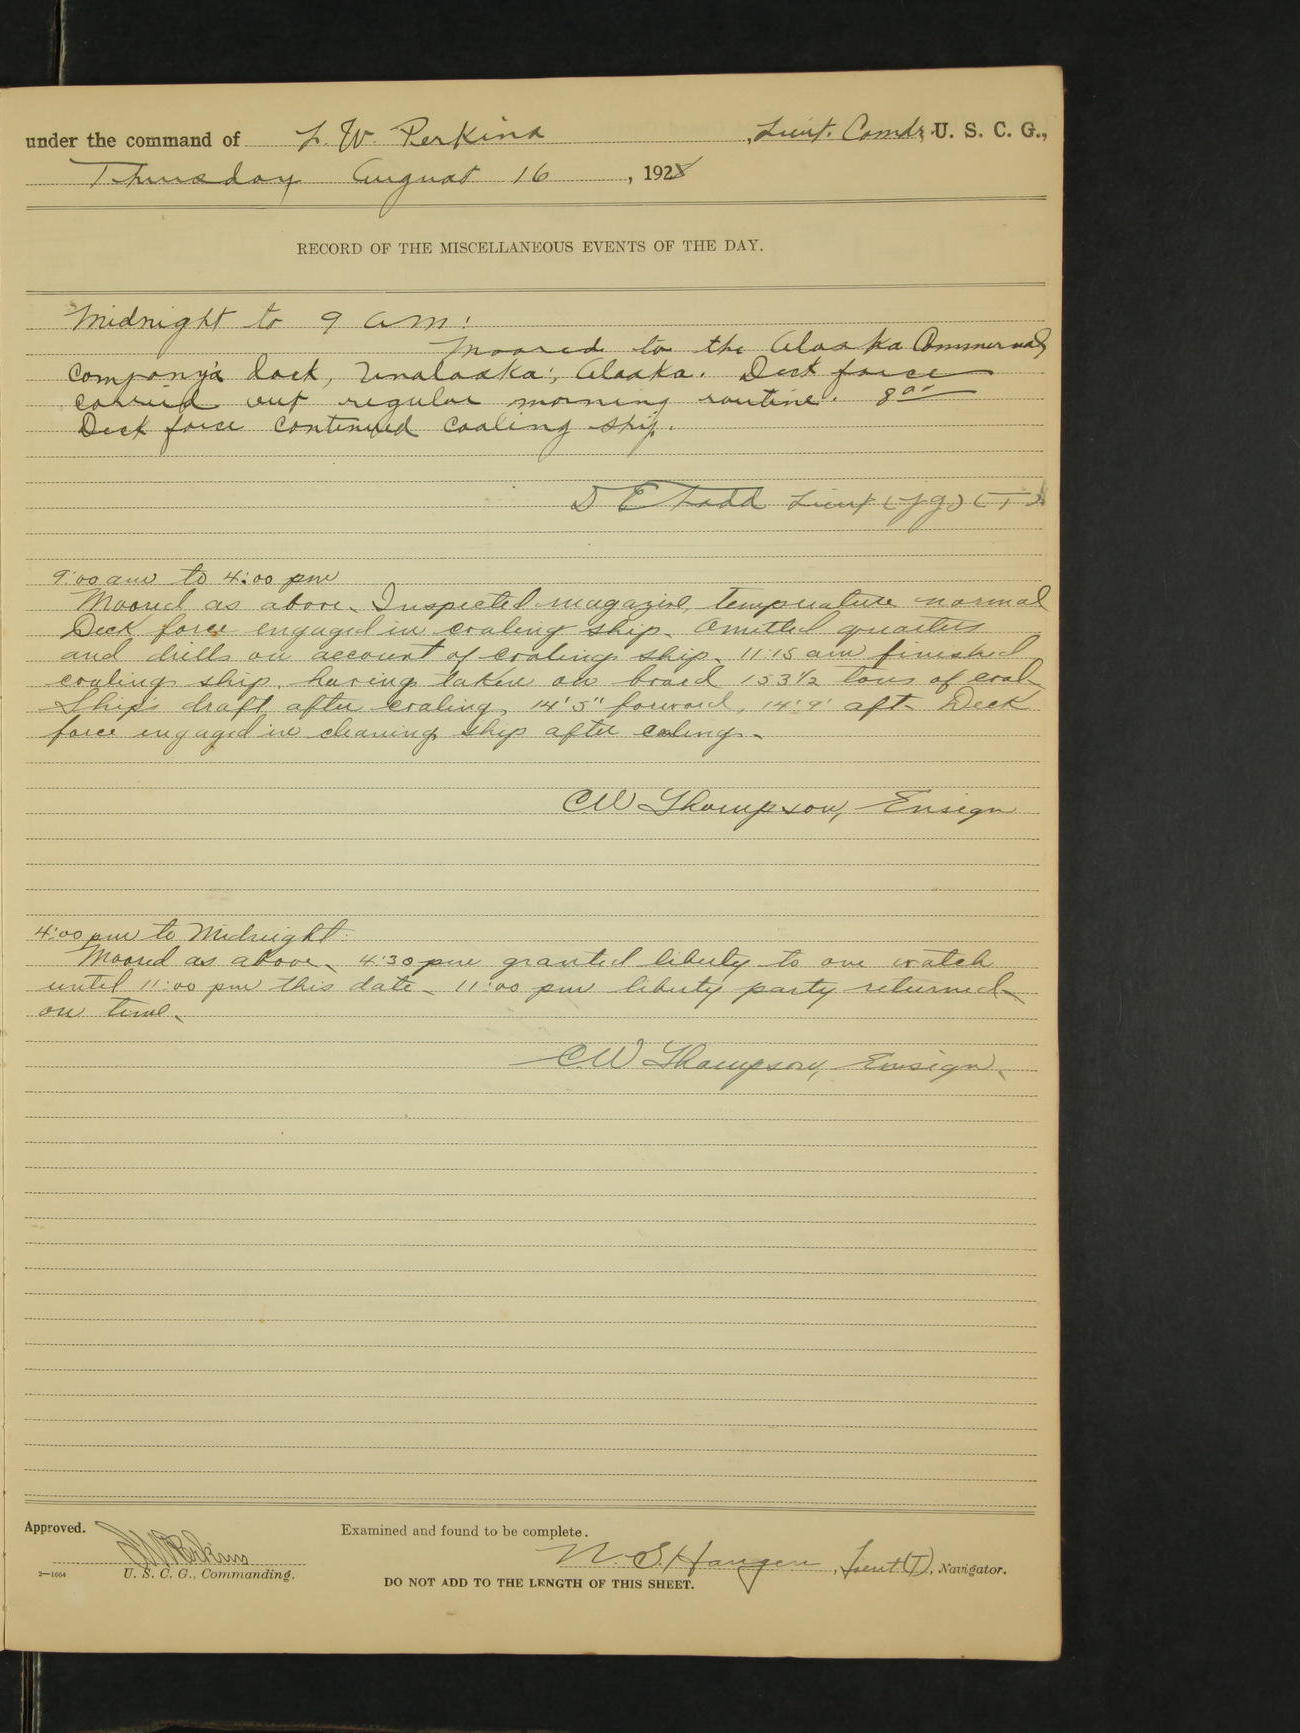 under the command of L. W. Perkins, Lieut. Comdr, U. S. C. G.,
Thursday August 16, 1928
RECORD OF THE MISCELLANEOUS EVENTS OF THE DAY.
Midnight to 9 am:
Moored to the Alaska Commercial
Company's dock, Unalaska, Alaska. Deck force
carried out regular morning routine. 8 00
Deck force continued coaling ship.
S E Ladd Lieut (jg) (T)
9:00 am to 4:00 pm
Moored as above. Inspected magazine, temperature normal
Deck force engaged in coaling ship. Omitted quarters
and drills on account of coaling ship. 11:15 am finished
coaling ship, having taken on board 153 1/2 tons of coal
Ships draft after coaling, 14'5" forward, 14'9" aft. Deck
force engaged in cleaning ship after coaling.
C.W Thompson, Ensign
4:00 pm to Midnight:
Moored as above. 4:30 pm granted liberty to one watch
until 11:00 pm this date. 11:00 pm liberty party returned
on time.
C.W Thompson, Ensign.
Approved.
Examined and found to be complete.
L W Perkins
N. S. Haugen, Lieut (T), Navigator.
2—1664
U. S. C. G., Commanding.
DO NOT ADD TO THE LENGTH OF THIS SHEET.